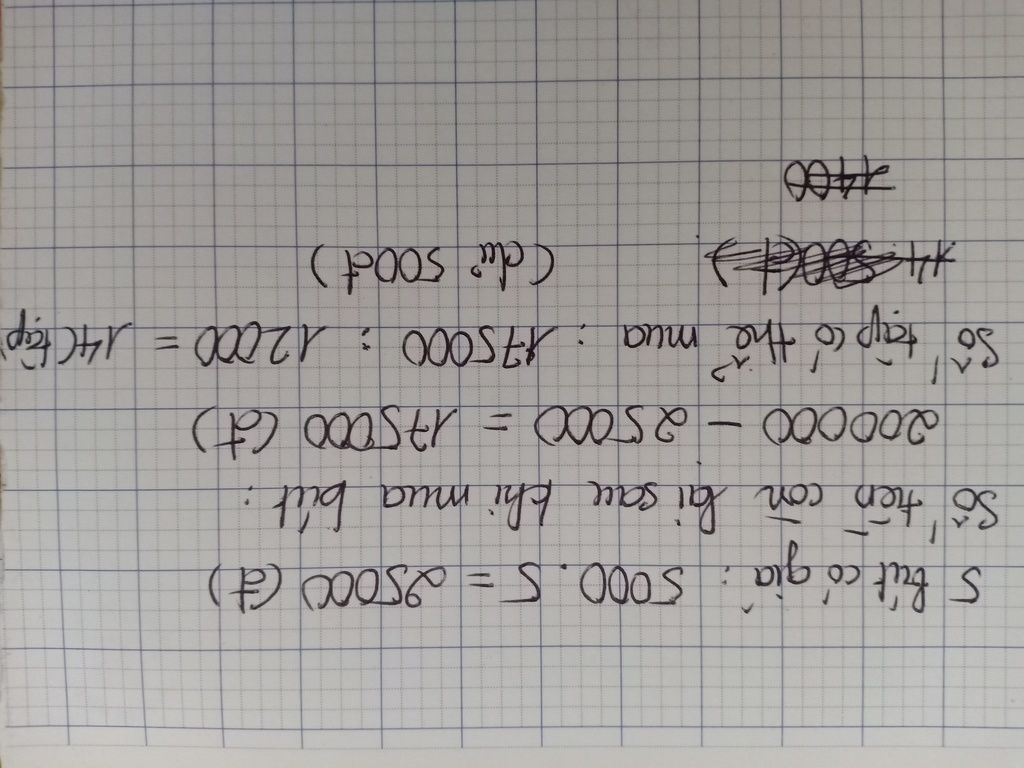 5 bút có giá : 5000 . 5 = 25000 (đ)
Số tiền còn lại sau khi mua bút :
200000 - 25000 = 175000 (đ)
Số tập có thể mua : 175000 : 12000 = 14 (tập)
(dư 500đ)
1400